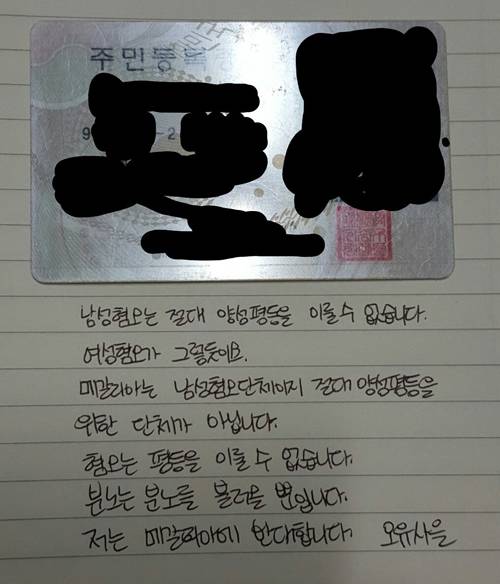 주민등록
9 -2
남성혐오는 절대 양성평등을 이룰 수 없습니다.
여성혐오가 그렇듯이요.
메갈리아는 남성혐오단체이지 절대 양성평등을
위한 단체가 아닙니다.
혐오는 평등을 이룰 수 없습니다.
분노는 분노를 불러올 뿐입니다.
저는 메갈리아에 반대합니다. 오유사을